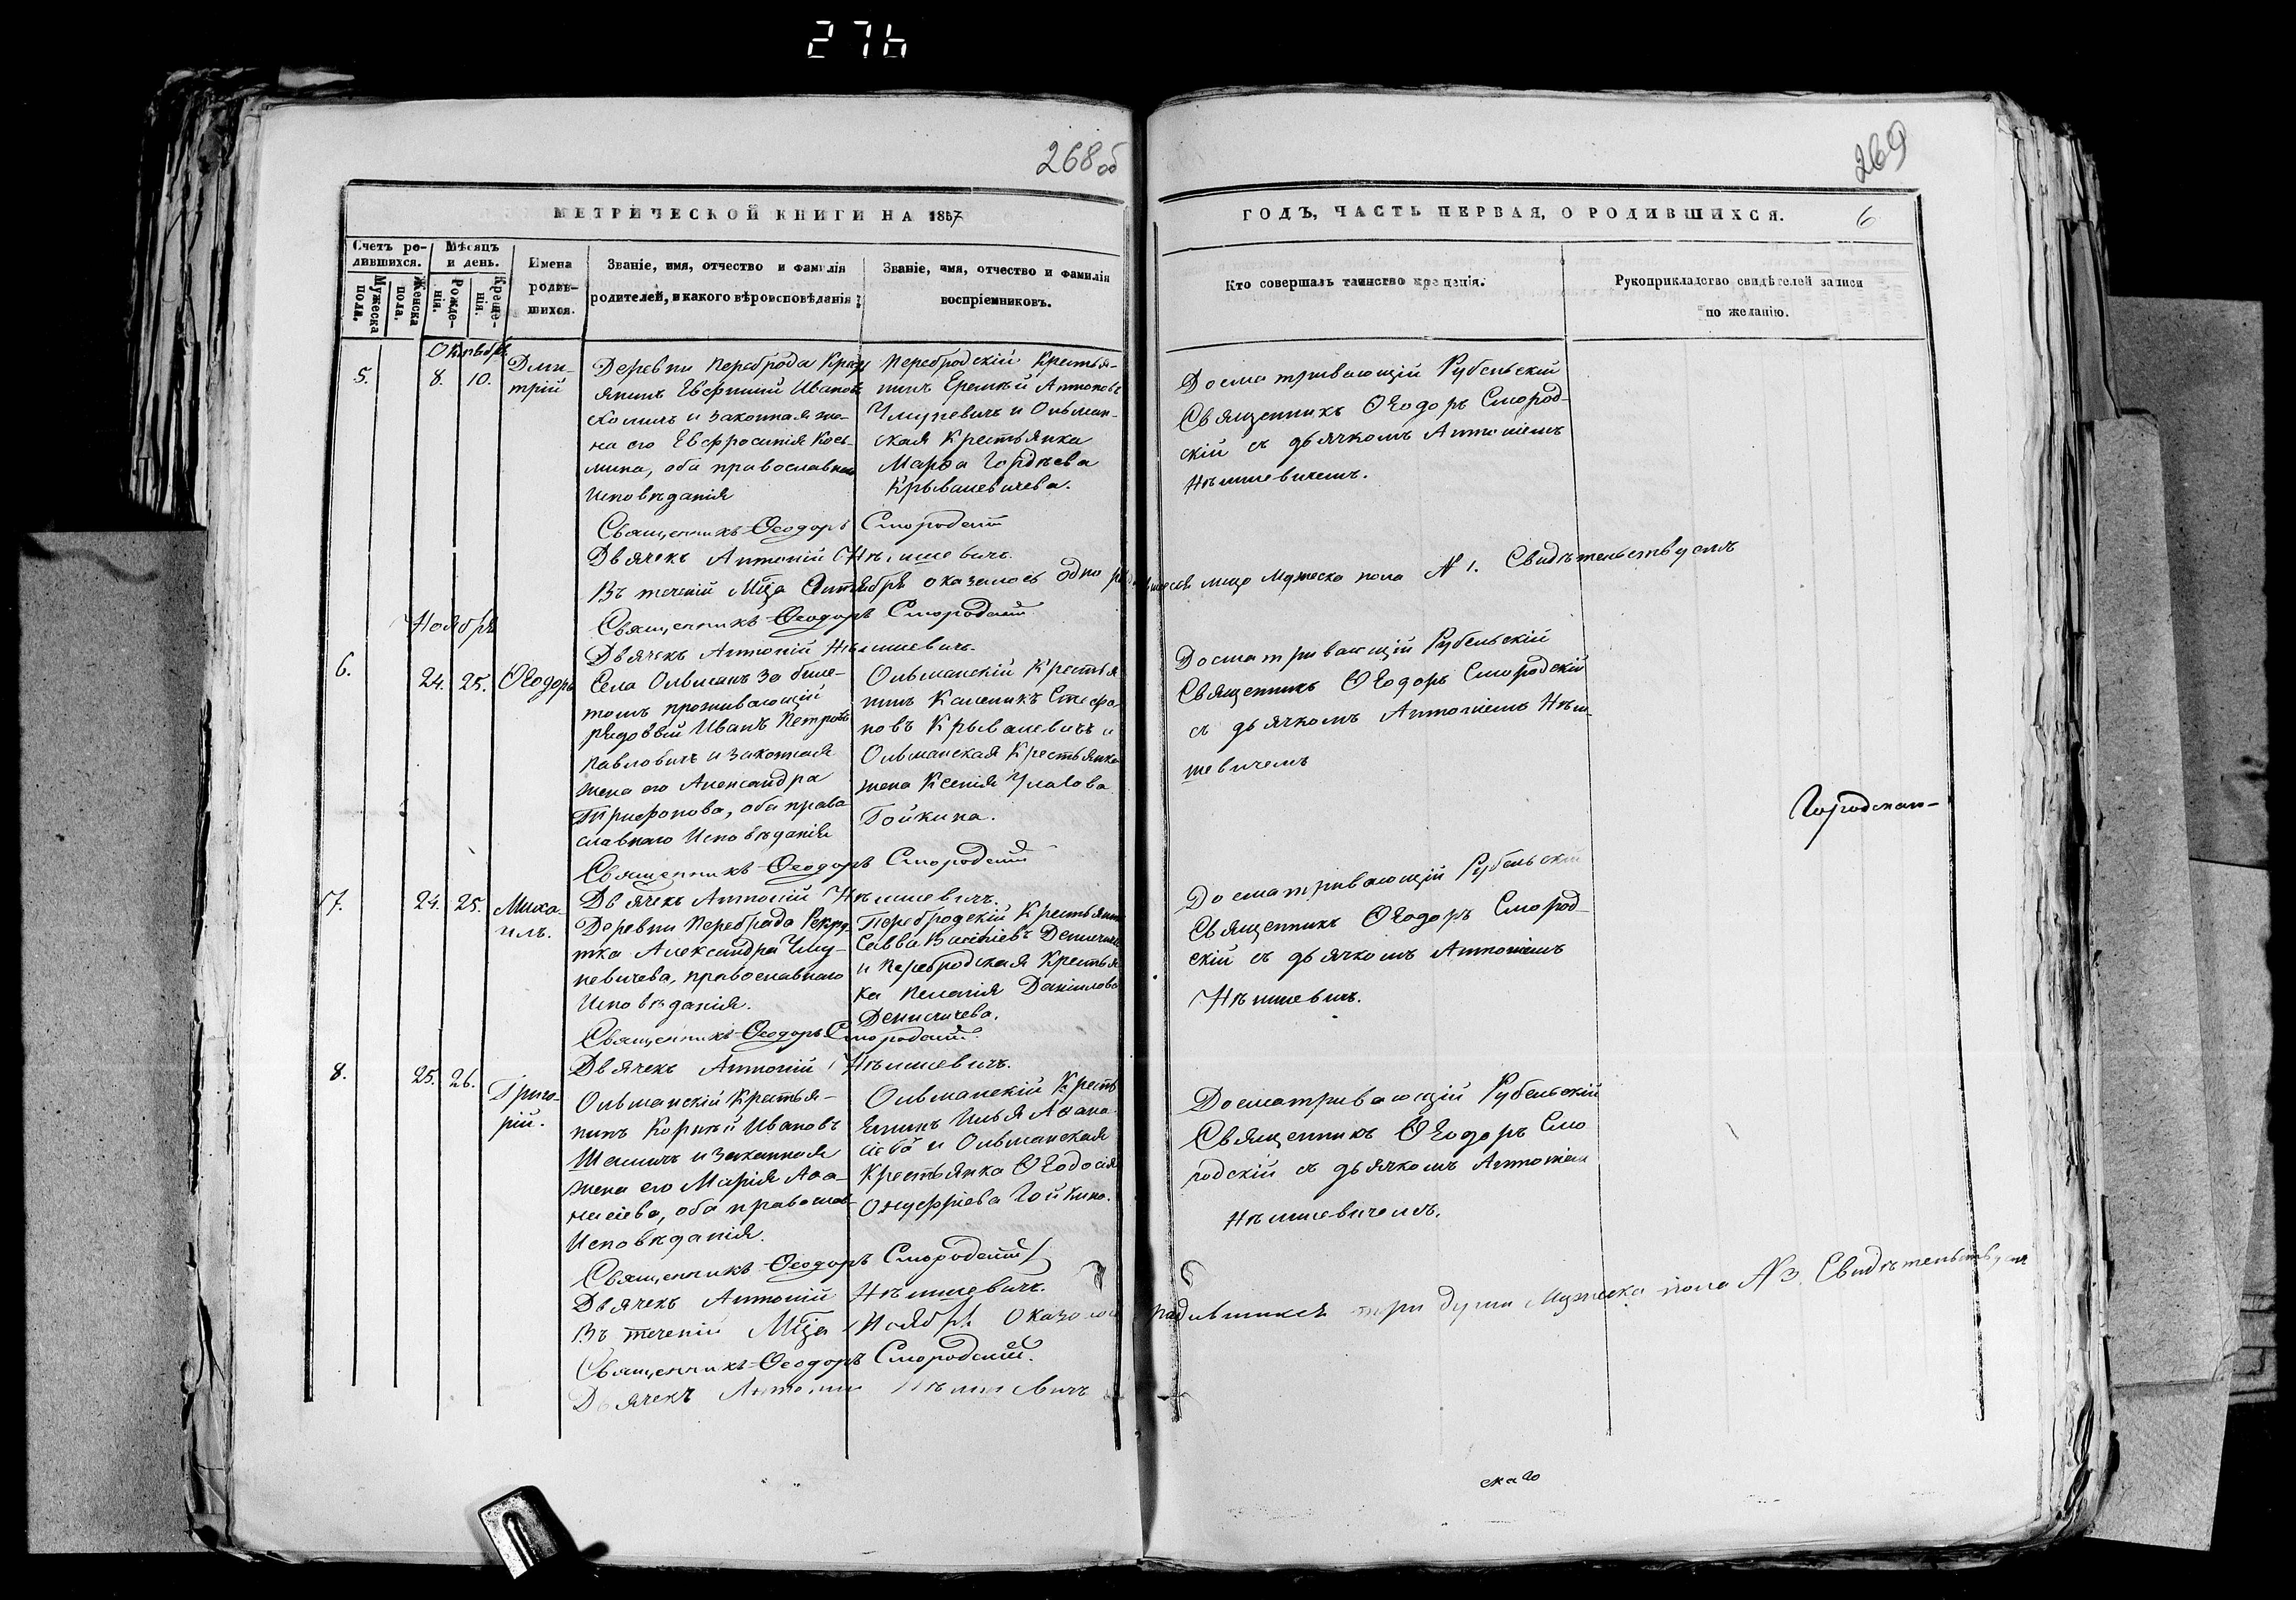 276
268 об
269
МЕТРИЧЕСКОЙ КНИГИ НА 1857
ГОДЪ, ЧАСТЬ ПЕРВАЯ, О РОДИВШИХСЯ.
6
Счетъ родившихся.
Мужеска пола.
Женска пола.
Мѣсяцъ и день.
Рожденія.
Крещенія.
Имена родившихся.
Званіе, имя, отчество и фамилія
родителей, и какого вѣроисповѣданія:
Званіе, имя, отчество и фамилія
воспріемниковъ.
Кто совершалъ таинство крещенія.
Рукоприкладство свидѣтелей записи
по желанію.
Октябрь
5.
8.
10.
Дми-
трій
Деревни Переброда Крест
янинъ Евфимій Ивановъ
и законная же-
на его Евфросинія Кось-
мина, оба православнаго
Исповѣданія
Перебродскій Крестья-
нинъ Еремѣй Антоновъ
Чмуневичъ и Ольман-
ская Крестьянка
Марѳа Гордѣева
Крываневичева.
Досматривающій Рубельскій
Священникъ Ѳеодоръ Смород-
скій съ дьячкомъ Антоніемъ
Нѣмшевичемъ.
Священникъ Ѳеодоръ Смородскій
Дьячекъ Антоній Нѣмшевичъ.
Въ теченіи Мца Октября оказалось одно лицо Мужеска пола N 1. Свидѣтельствуемъ
Священникъ Ѳеодоръ Смородскій
Дьячекъ Антоній Нѣмшевичъ.
Ноябрь
6.
24.
25.
Ѳеодоръ
Села Ольманъ за биле-
томъ проживающій
рядовый Иванъ Петровъ
Павловичъ и законная
жена его Александра
Трифонова, оба право
славнаго Исповѣданія
Ольманскій Крестья
нинъ Калиникъ Стефа
новъ Крываневичъ и
Ольманская Крестьянка
жена Ксенія
Гойкина.
Досматривающій Рубельскій
Священникъ Ѳеодоръ Смородскій
съ дьячкомъ Антоніемъ Нѣм-
шевичемъ
Священникъ Ѳеодоръ Смородскій
Дьячекъ Антоній Нѣмшевичъ.
7.
24.
25.
Миха-
илъ.
Деревни Переброда Рекру-
тка Александра Чму-
невичева, православнаго
Исповѣданія.
Перебродскій Крестьянинъ
Савва Василіевъ
и Перебродская Крестьян
ка Пелагія Даніилова
Денисичева.
Досматривающій Рубельскій
Священникъ Ѳеодоръ Смород-
скій съ дьячкомъ Антоніемъ
Нѣмшевичъ.
Священникъ Ѳеодоръ Смородскій.
Дьячекъ Антоній Нѣмшевичъ.
8.
25.
26.
Григо-
рій.
Ольманскій Крестья-
нинъ Корнѣй Ивановъ
и законная
жена его Марія Аѳа-
насіева, оба православ
Исповѣданія.
Ольманскій Кресть
янинъ Илья Аѳана
сіевъ и Ольманская
Крестьянка Ѳеодосія
Онуфріева Гойкина.
Досматривающій Рубельскій
Священникъ Ѳеодоръ Смо
родскій съ дьячкомъ Антоніем
Нѣмшевичемъ.
Священникъ Ѳеодоръ Смородскій
Дьячекъ Антоній Нѣмшевичъ.
Въ теченіи Мца Ноября Оказалось родившихся три души Мужеска пола N 3. Свидѣтельствуемъ
Священникъ Ѳеодоръ Смородскій.
Дьячекъ Антоній Нѣмшевичъ
скаго